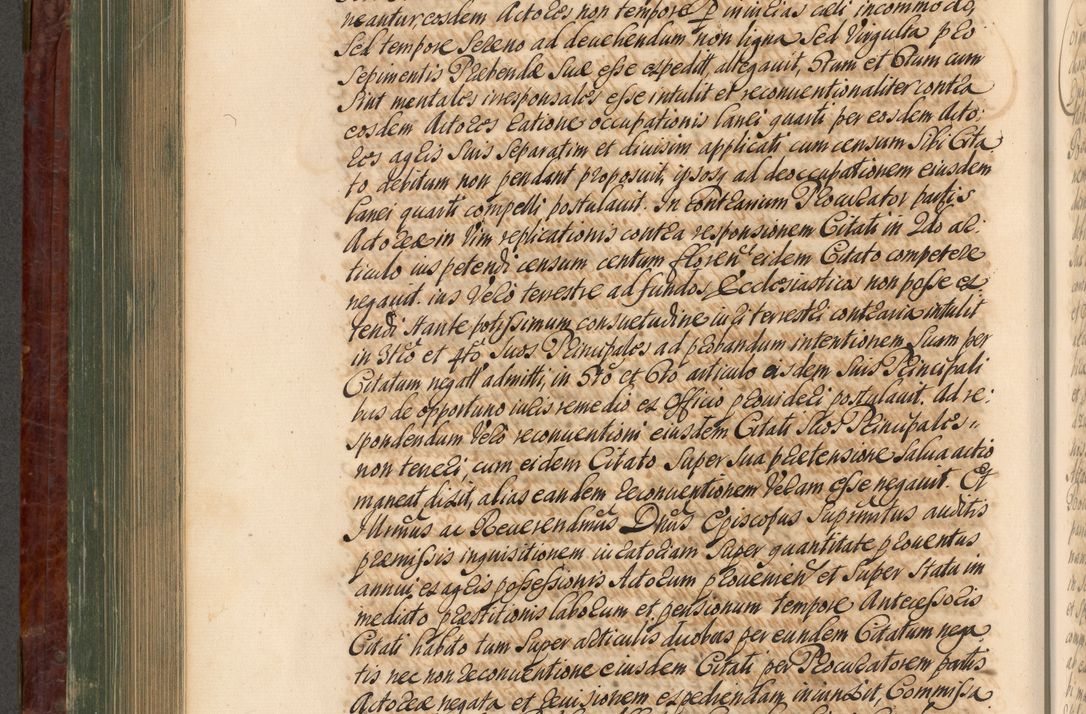 neantur, eosdem Actores non tempore p iniurias caeli incommodo,
sed tempore sereno ad devehendum non ligna sed virgulta pro
sepimentis Praebendae suae esse expedit, allegavit, 5tum et 6tum cum
sint mentales irresponsales esse intulit et reconventionaliter contra
eosdem Actores ratione occupationis lanei quarti per eosdem Acto:
res agris suis separatim et divisim applicati cum censum sibi Cita
to debitum non pendant proposuit, ipsosq ad deoccupationem eiusdem
lanei quarti compelli postulavit. In contrarium Procurator partis
Actoreae in vim replicationis contra responsionem Citati in 2do ar:
ticulo ius petendi censum centum floren eidem Citato competere
negavit. ius vero terrestre ad fundos Ecclesiasticos non posse ex
tendi stante potissimum consuetudine iuri terrestri contraria intulit
in 3tio et 4to suos Principales ad probandum intentionem suam per
Citatum negatt admitti, in 5to et 6to articulo eisdem suis Principali
bus de opportuno iuris remedio ex Officio provideri postulavit. Ad re:
spondendum vero reconventioni eiusdem Citati suos Principales
non teneri, cum eidem Citato super sua praetensione salva actio
maneat dixit, alias eandem reconventionem veram esse negavit. Et
Illrmus ac Reverendmus Dnus Episcopus suprmtus auditis
praemissis inquisitionem iuratoriam super quantitate proventus
annui, ex agris possessionis Actorum provenien et super statu im
mediato praestitionis laborum et pensionum tempore Antecessoris
Citati habito tum super articulis duobus per eundem Citatum nega
tis nec non reconventione eiusdem Citati per Procuratorem partis
Actoreae negata et revisionem expediendam iniunxit, Commissa